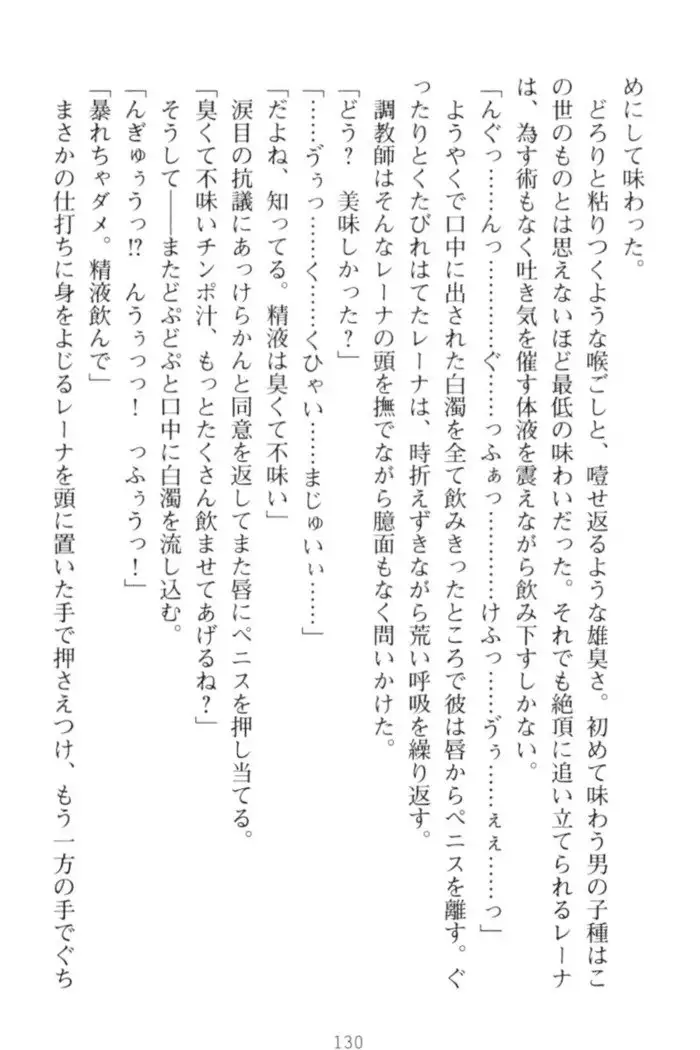 めにして味わった。
　どろりと粘りつくような喉ごしと、噎せ返るような雄臭さ。初めて味わう男の子種はこ
の世のものとは思えないほど最低の味わいだった。それでも絶頂に追い立てられるレーナ
は、為す術もなく吐き気を催す体液を震えながら飲み下すしかない。
「んぐっ……んっ…………ぐ……っふぁっ…………けふっ……ゔぅ……ぇぇ……っ」
　ようやくで口中に出された白濁を全て飲みきったところで彼は唇からペニスを離す。ぐ
ったりとくたびれはてたレーナは、時折えずきながら荒い呼吸を繰り返す。
　調教師はそんなレーナの頭を撫でながら臆面もなく問いかけた。
「どう？　美味しかった？」
「……ゔぅっ……く……くひゃい……まじゅいぃ……」
「だよね、知ってる。精液は臭くて不味い」
　涙目の抗議にあっけらかんと同意を返してまた唇にペニスを押し当てる。
「臭くて不味いチンポ汁、もっとたくさん飲ませてあげるね？」
　そうして――またどぷどぷと口中に白濁を流し込む。
「んぎゅぅうっ!?　んうぅっっ！　っふぅうっ！」
「暴れちゃダメ。精液飲んで」
　まさかの仕打ちに身をよじるレーナを頭に置いた手で押さえつけ、もう一方の手でぐち
130